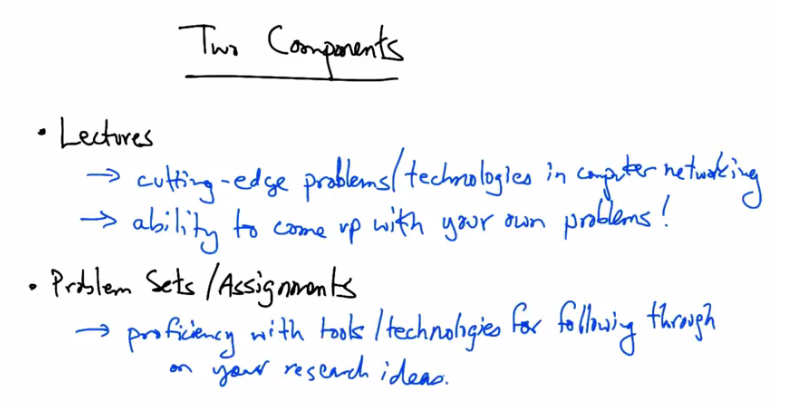 Two Components
• Lectures
→ cutting-edge problems/technologies in computer networking
→ ability to come up with your own problems!
• Problem Sets/Assignments
→ proficiency with tools/technologies for following through
on your research ideas.